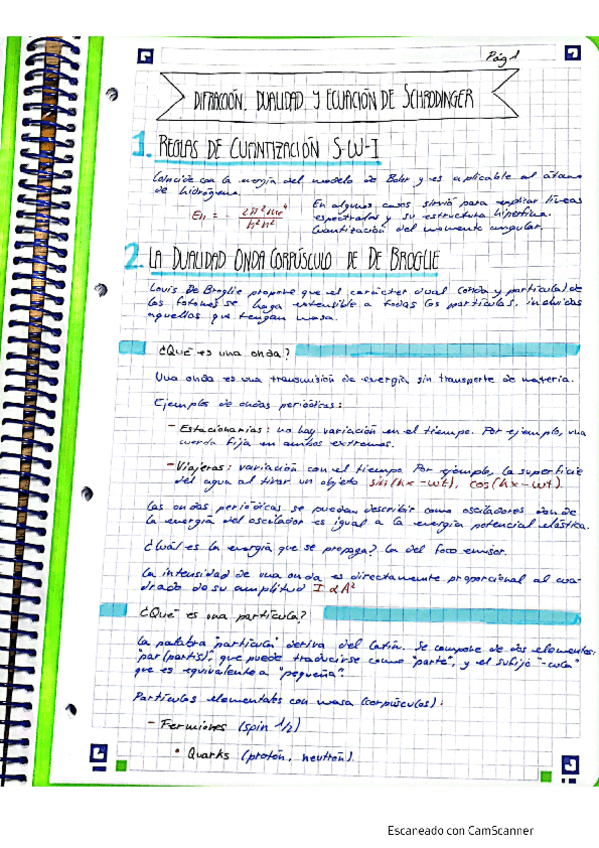 Pág 1
DIFRACCIÓN, DUALIDAD Y ECUACIÓN DE SCHRÖDINGER
1. REGLAS DE CUANTIZACIÓN S-W-I
Coincide con la energía del modelo de Bohr y es aplicable al átomo
de hidrógeno.
En = - 2π²me⁴ / h²n²
En algunos casos sirvió para explicar líneas
espectrales y su estructura hiperfina.
Cuantización del momento angular.
2. LA DUALIDAD ONDA CORPÚSCULO DE DE BROGLIE
Louis De Broglie propone que el carácter dual (onda y partícula) de
los fotones se haga extensible a todas las partículas, incluidas
aquellas que tengan masa.
¿Qué es una onda?
Una onda es una transmisión de energía sin transporte de materia.
Ejemplos de ondas periódicas:
- Estacionarias: no hay variación en el tiempo. Por ejemplo, una
cuerda fija en ambos extremos.
- Viajeras: variación con el tiempo. Por ejemplo, la superficie
del agua al tirar un objeto sin(kx-wt), cos(kx-wt).
Las ondas periódicas se pueden describir como osciladores donde
la energía del oscilador es igual a la energía potencial elástica.
¿Cuál es la energía que se propaga? La del foco emisor.
La intensidad de una onda es directamente proporcional al cua-
drado de su amplitud I α A²
¿Qué es una partícula?
La palabra "partícula" deriva del latín. Se compone de dos elementos:
"par(partis)", que puede traducirse como "parte", y el sufijo "-cula"
que es equivalente a "pequeña".
Partículas elementales con masa (corpúsculos):
- Fermiones (spin 1/2)
• Quarks (protón, neutrón).
Escaneado con CamScanner